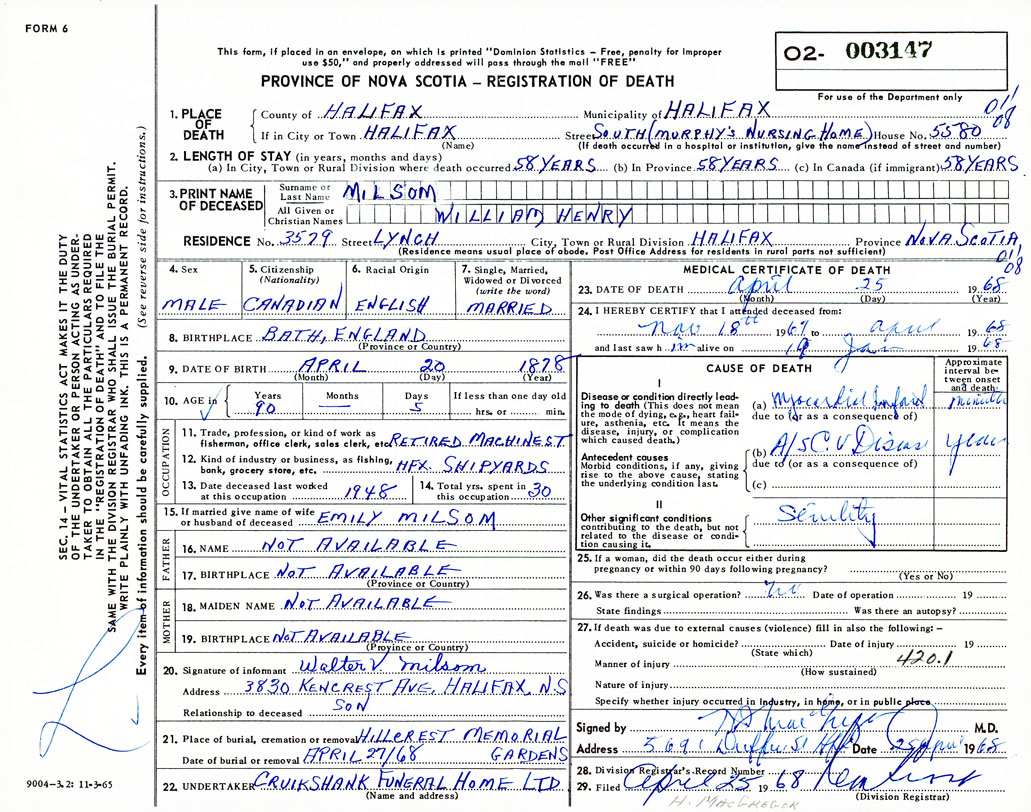 FORM 6
This form, if placed in an envelope, on which is printed "Dominion Statistics – Free, penalty for improper
use $50," and properly addressed will pass through the mail "FREE"
PROVINCE OF NOVA SCOTIA – REGISTRATION OF DEATH
02- 003147
For use of the Department only
011
08
1. PLACE OF DEATH
County of HALIFAX Municipality of HALIFAX
If in City or Town HALIFAX Street SOUTH (MURPHY'S NURSING HOME) House No. 5580
(Name) (If death occurred in a hospital or institution, give the name instead of street and number)
2. LENGTH OF STAY (in years, months and days)
(a) In City, Town or Rural Division where death occurred 58 YEARS (b) In Province 58 YEARS (c) In Canada (if immigrant) 58 YEARS
3. PRINT NAME OF DECEASED
Surname or Last Name MILSOM
All Given or Christian Names WILLIAM HENRY
RESIDENCE No. 3579 Street LYNCH City, Town or Rural Division HALIFAX Province NOVA SCOTIA
(Residence means usual place of abode. Post Office Address for residents in rural parts not sufficient)
011
08
4. Sex
MALE
5. Citizenship
(Nationality)
CANADIAN
6. Racial Origin
ENGLISH
7. Single, Married,
Widowed or Divorced
(write the word)
MARRIED
8. BIRTHPLACE BATH, ENGLAND
(Province or Country)
9. DATE OF BIRTH APRIL 20 1878
(Month) (Day) (Year)
10. AGE in Years Months Days If less than one day old
90 — 5 hrs. or min.
OCCUPATION
11. Trade, profession, or kind of work as
fisherman, office clerk, sales clerk, etc. RETIRED MACHINEST
12. Kind of industry or business, as fishing,
bank, grocery store, etc. HFX. SHIPYARDS
13. Date deceased last worked
at this occupation 1948
14. Total yrs. spent in
this occupation 30
15. If married give name of wife
or husband of deceased EMILY MILSOM
FATHER
16. NAME NOT AVAILABLE
17. BIRTHPLACE NOT AVAILABLE
(Province or Country)
MOTHER
18. MAIDEN NAME NOT AVAILABLE
19. BIRTHPLACE NOT AVAILABLE
(Province or Country)
20. Signature of informant Walter V. Milsom
Address 3830 KENCREST AVE, HALIFAX, N.S
Relationship to deceased SON
21. Place of burial, cremation or removal HILLCREST MEMORIAL
Date of burial or removal APRIL 27/68 GARDENS
22. UNDERTAKER CRUIKSHANK FUNERAL HOME LTD.
(Name and address)
MEDICAL CERTIFICATE OF DEATH
23. DATE OF DEATH April 25 1968
(Month) (Day) (Year)
24. I HEREBY CERTIFY that I attended deceased from:
Nov 18th 1967 to April 1968
and last saw him alive on 19 Jan 1968
CAUSE OF DEATH
Approximate
interval be-
tween onset
and death
I
Disease or condition directly lead-
ing to death (This does not
mean the mode of dying, e.g., heart fail-
ure, asthenia, etc. It means the
disease, injury, or complication
which caused death.)
(a) Myocardial Infarct minutes
due to (or as a consequence of)
Antecedent causes
Morbid conditions, if any, giving
rise to the above cause, stating
the underlying condition last.
(b) A/S C.V Disease years
due to (or as a consequence of)
(c)
II
Other significant conditions
contributing to the death, but not
related to the disease or condi-
tion causing it.
Senility
25. If a woman, did the death occur either during
pregnancy or within 90 days following pregnancy?
(Yes or No)
26. Was there a surgical operation? no Date of operation 19
State findings Was there an autopsy?
27. If death was due to external causes (violence) fill in also the following: –
Accident, suicide or homicide? Date of injury 19
(State which)
420.1
Manner of injury
(How sustained)
Nature of injury
Specify whether injury occurred in industry, in home, or in public place
Signed by M.D.
Address 5691 St Hfx Date 25 April 1968
28. Division Registrar's Record Number
29. Filed April 25 1968
(Division Registrar)
H. MACGREGOR
SEC. 14 – VITAL STATISTICS ACT MAKES IT THE DUTY
OF THE UNDERTAKER OR PERSON ACTING AS UNDER-
TAKER TO OBTAIN ALL THE PARTICULARS REQUIRED
IN THE "REGISTRATION OF DEATH" AND TO FILE THE
SAME WITH THE DIVISION REGISTRAR WHO SHALL ISSUE THE BURIAL PERMIT.
WRITE PLAINLY WITH UNFADING INK. THIS IS A PERMANENT RECORD.
Every item of information should be carefully supplied. (See reverse side for instructions.)
9004-3.2: 11-3-65